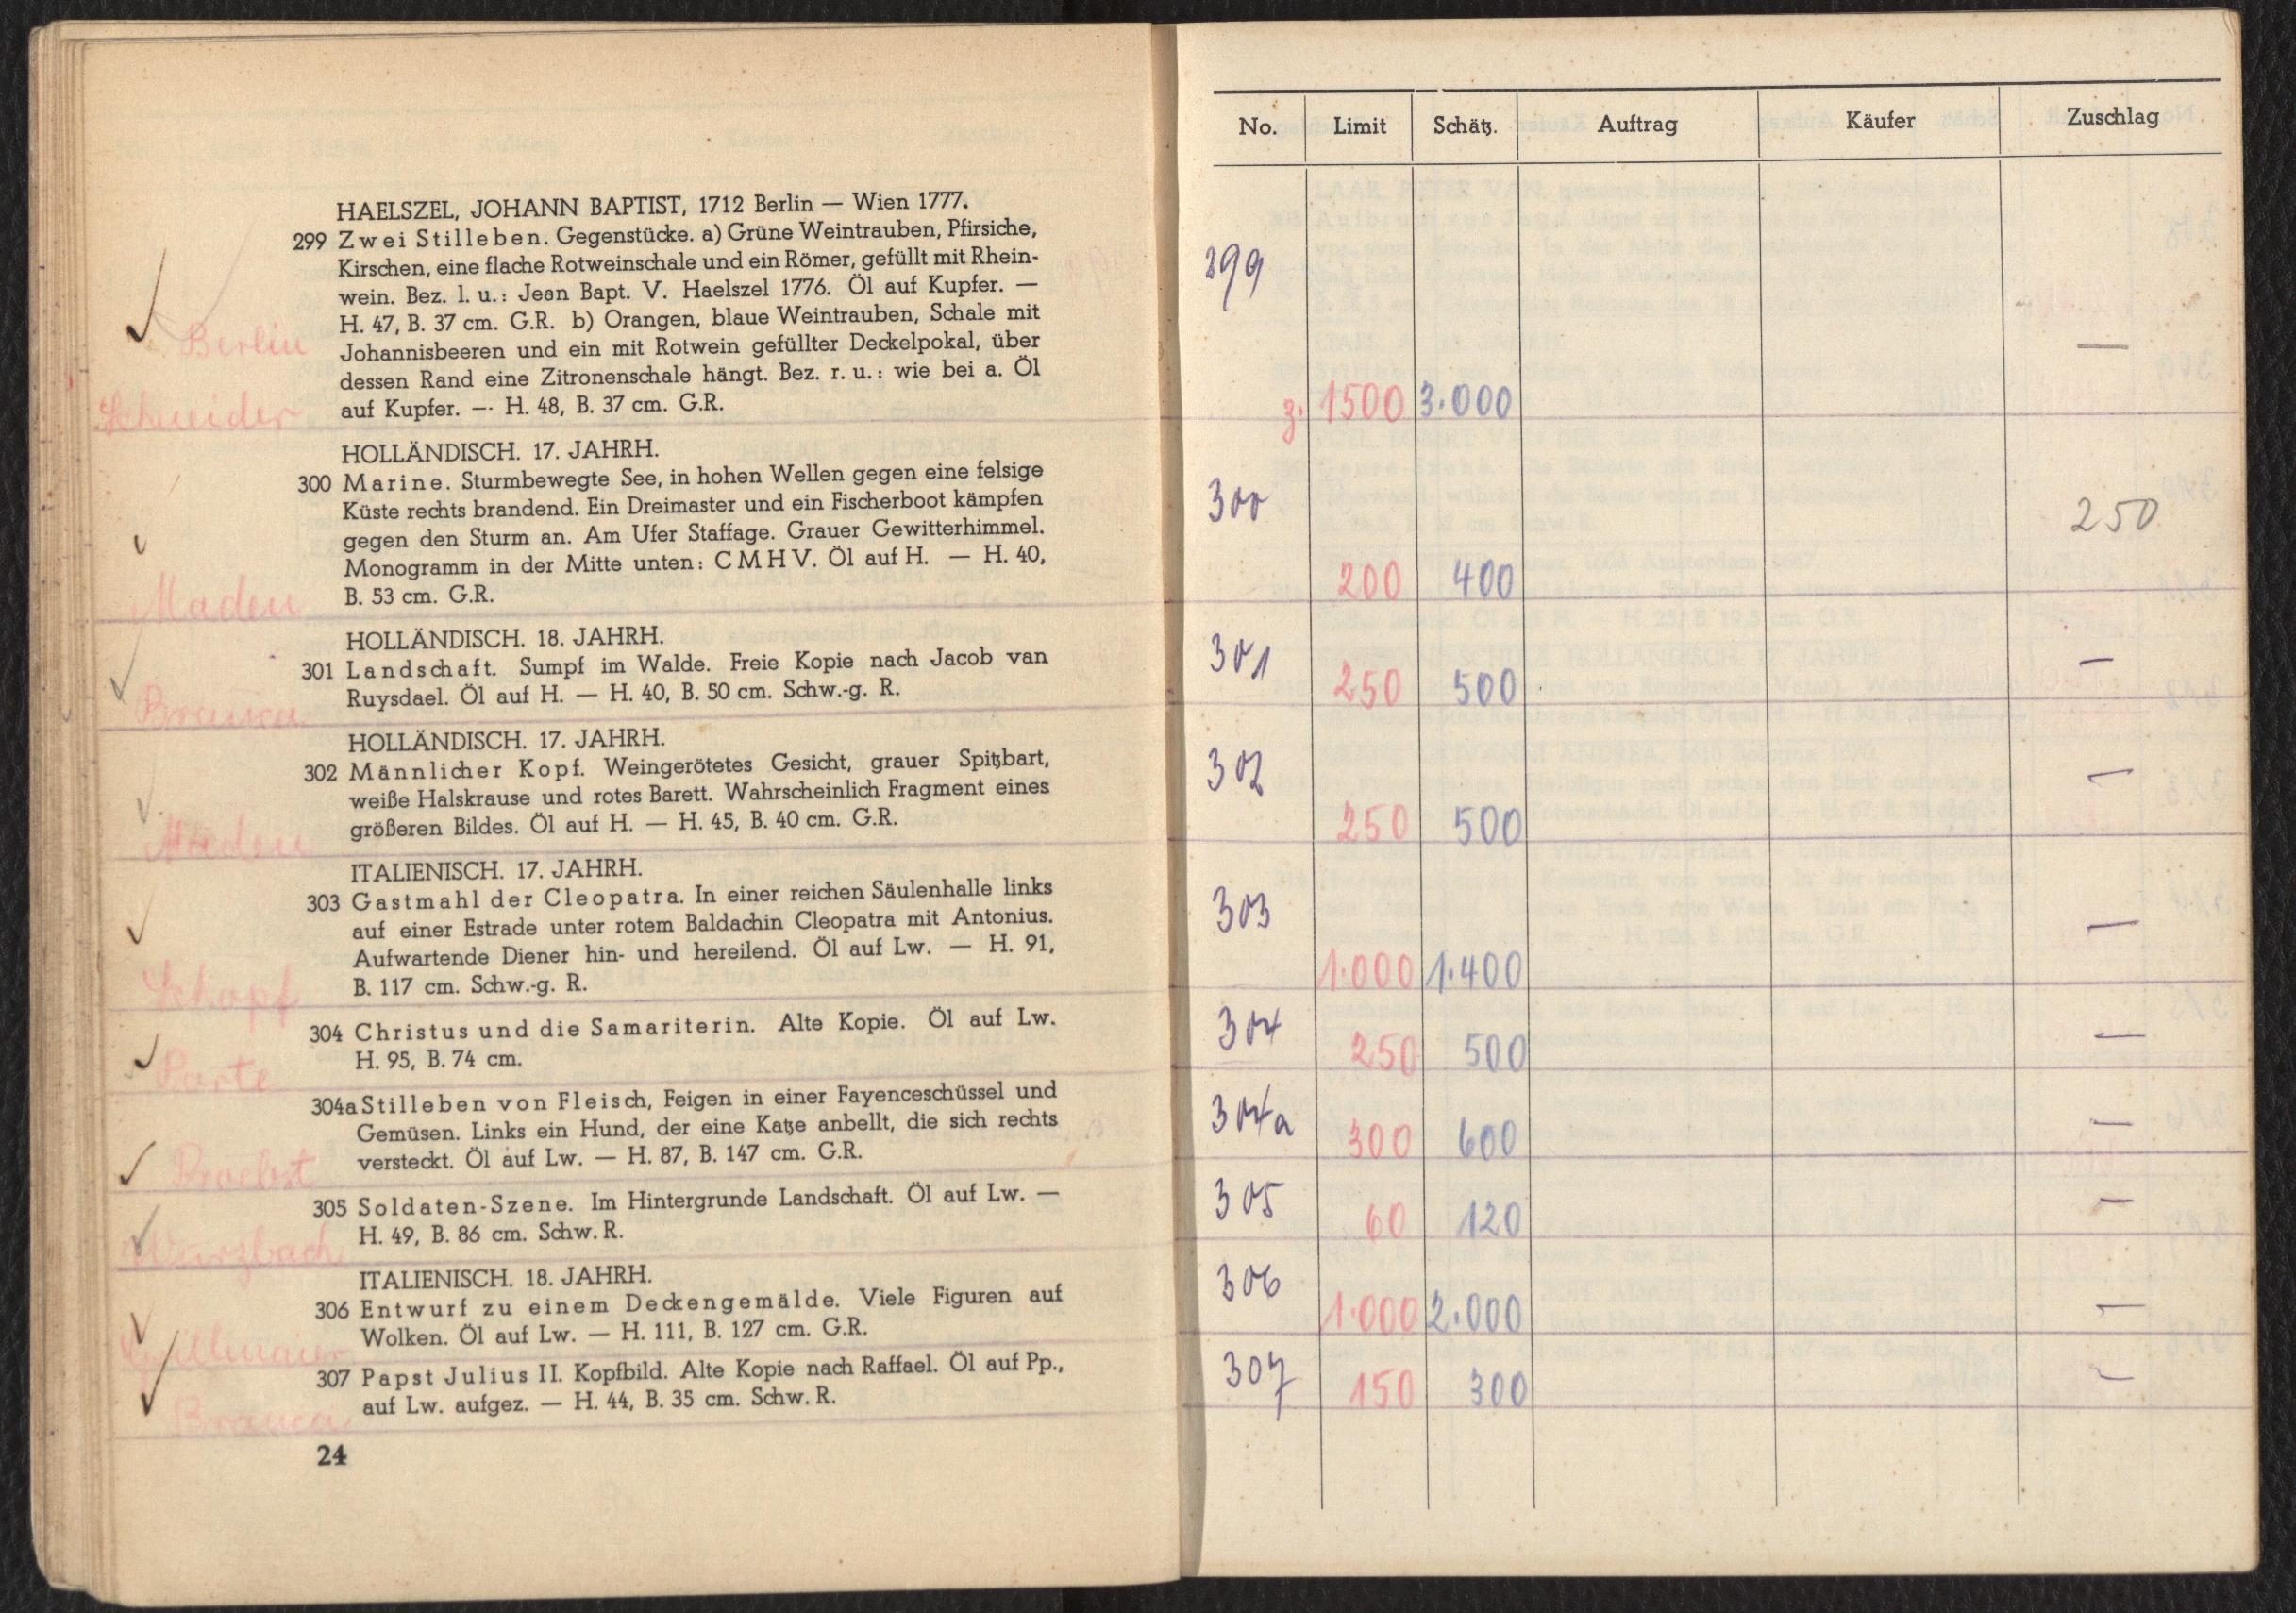 HAELSZEL, JOHANN BAPTIST, 1712 Berlin — Wien 1777.
299 Zwei Stilleben. Gegenstücke. a) Grüne Weintrauben, Pfirsiche,
Kirschen, eine flache Rotweinschale und ein Römer, gefüllt mit Rhein-
wein. Bez. l. u.: Jean Bapt. V. Haelszel 1776. Öl auf Kupfer. —
H. 47, B. 37 cm. G.R. b) Orangen, blaue Weintrauben, Schale mit
Berlin
Johannisbeeren und ein mit Rotwein gefüllter Deckelpokal, über
dessen Rand eine Zitronenschale hängt. Bez. r. u.: wie bei a. Öl
Schneider
auf Kupfer. — H. 48, B. 37 cm. G.R.
HOLLÄNDISCH. 17. JAHRH.
300 Marine. Sturmbewegte See, in hohen Wellen gegen eine felsige
Küste rechts brandend. Ein Dreimaster und ein Fischerboot kämpfen
gegen den Sturm an. Am Ufer Staffage. Grauer Gewitterhimmel.
Monogramm in der Mitte unten: C M H V. Öl auf H. — H. 40,
Maden
B. 53 cm. G.R.
HOLLÄNDISCH. 18. JAHRH.
301 Landschaft. Sumpf im Walde. Freie Kopie nach Jacob van
Branca
Ruysdael. Öl auf H. — H. 40, B. 50 cm. Schw.-g. R.
HOLLÄNDISCH. 17. JAHRH.
302 Männlicher Kopf. Weingerötetes Gesicht, grauer Spitzbart,
weiße Halskrause und rotes Barett. Wahrscheinlich Fragment eines
Maden
größeren Bildes. Öl auf H. — H. 45, B. 40 cm. G.R.
ITALIENISCH. 17. JAHRH.
303 Gastmahl der Cleopatra. In einer reichen Säulenhalle links
auf einer Estrade unter rotem Baldachin Cleopatra mit Antonius.
Aufwartende Diener hin- und hereilend. Öl auf Lw. — H. 91,
Schopf
B. 117 cm. Schw.-g. R.
304 Christus und die Samariterin. Alte Kopie. Öl auf Lw.
H. 95, B. 74 cm.
304a Stilleben von Fleisch, Feigen in einer Fayenceschüssel und
Gemüsen. Links ein Hund, der eine Katze anbellt, die sich rechts
Proebst
versteckt. Öl auf Lw. — H. 87, B. 147 cm. G.R.
305 Soldaten-Szene. Im Hintergrunde Landschaft. Öl auf Lw. —
Wurzbach
H. 49, B. 86 cm. Schw. R.
ITALIENISCH. 18. JAHRH.
306 Entwurf zu einem Deckengemälde. Viele Figuren auf
Wolken. Öl auf Lw. — H. 111, B. 127 cm. G.R.
307 Papst Julius II. Kopfbild. Alte Kopie nach Raffael. Öl auf Pp.,
Branca
auf Lw. aufgez. — H. 44, B. 35 cm. Schw. R.
24
No. Limit Schätz. Auftrag Käufer Zuschlag
299 —
z. 1500 3.000
300 250
200 400
301 250 500 —
302 —
250 500
303 —
1.000 1.400
304 250 500 —
304a 300 600 —
305 60 120 —
306 1.000 2.000 —
307 150 300 —